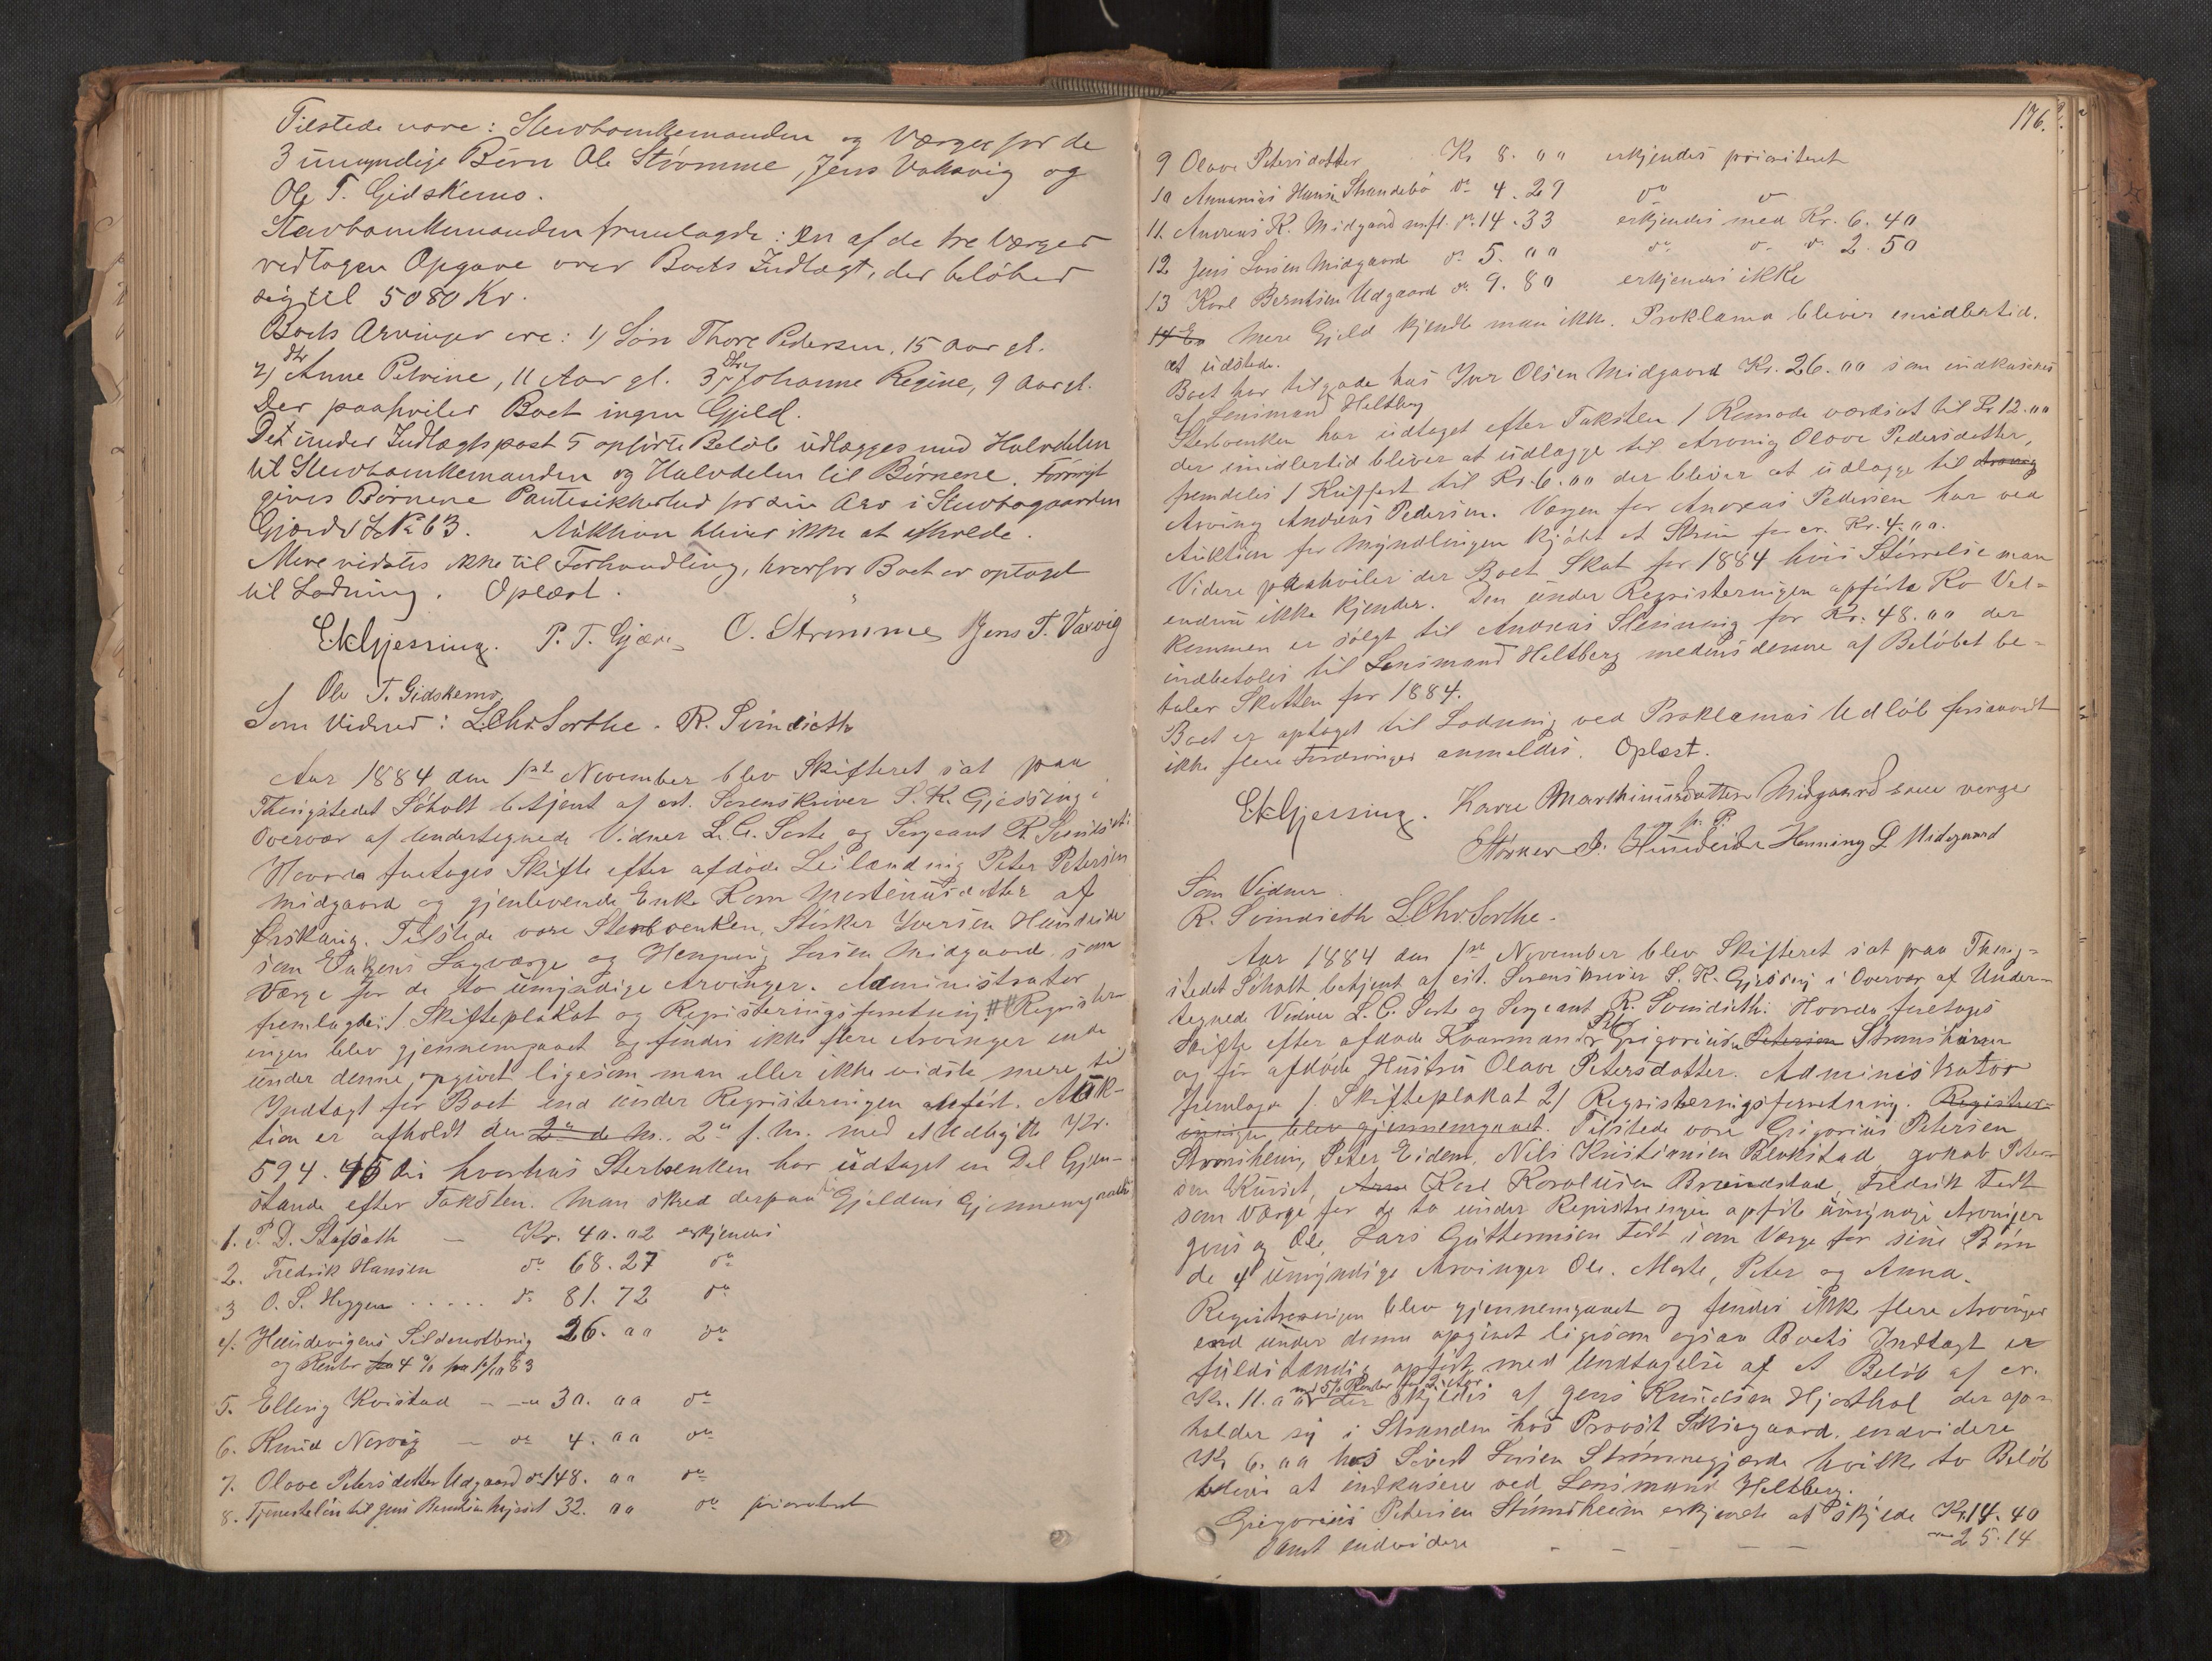 Tilstede vare: Stervboenkemanden og Værger for de
3 umyndige Børn Ole Strømme, Jens Vaksvig og
Ole T. Gidskemo.
Stervboenkemanden fremlagde: En af de tre Værger
vedtagen Opgave over Boets Indtægt, der beløber
sig til 5080 Kr.
Boets Arvinger ere: 1) Søn Thore Pedersen, 15 Aar gl.
2) Dtr Anne Petrine, 11 Aar gl. 3) Dtr Johanne Regine, 9 Aar gl.
Der paahviler Boet ingen Gjeld.
Det under Indtægtspost 5 opførte Beløb udlægges med Halvdelen
til Stervboenkemanden og Halvdelen til Børnene. Forøvrigt
gives Børnene Pantesikkerhed for sin Arv i Stervbogaarden
Gjærde L No 63. Auktion bliver ikke at afholde.
Mere vidstes ikke til Forhandling, hvorfor Boet er optaget
til Lodning. Oplæst.
E K Gjessing. P. T. Gjære O. Strømme Jens T. Vaxvig
Ole T. Gidskemo.
Som Vidner: L Chr Sorthe. R. Svindseth
Aar 1884 den 1ste November blev Skifteret sat paa
Thingstedet Søholt betjent af cst. Sorenskriver S. K. Gjessing i
Overvær af undertegnede Vidner L. C. Sorte og Sergeant R. Svindseth
Hvorda foretoges Skifte efter afdøde Leilænding Peter Petersen
Midgaard og gjenlevende Enke Karn Martenusdotter af
Ørskoug. Tilstede vare Sterboenken, Størker Iversen Hundeide
som Enkens Lagværge og Henning Larsen Midgaard som
Værge for de to umyndige Arvinger. Administrator
fremlagde: 1. Skifteplakat og Registeringsforretning. # Register-
ingen blev gjennemgaaet og findes ikke flere Arvinger end
under denne opgivet ligesom man eller ikke vidste mere til
Indtægt for Boet end under Registeringen anført. Auk-
tion er afholdt den 2n de M.. 2n f. M. med et Udbytte Kr.
594.45 Øre hvorhos Sterboenken har udtaget en Del Gjen-
stande efter Taksten. Man skred derpaa til Gjeldens Gjennemgaaelse
1. P. D. Stafseth — Kr. 40.02 erkjendes
2. Fredrik Hansen do 68.27 do
3 O. S. Heggen ..... do 81.72 do
4. Hundevigens Sildenotbrug 26.00 do
og Renter fra 4 % fra 1/10 83
5. Elling Kvistad — — 30.00 do
6. Knud Norvig — do 4.00 do
7. Olave Petersdotter Udgaard do 148.00 do
8. Tjenesteløn til Jens 32.00 do prioriteret
176.
9 Olave Petersdotter Kr 8.00 erkjendes prioriteret
10 Annanias Hansen Strandebø do 4.29 do do
11. Andreas K. Midgaard m.fl. do 14.33 erkjendes med Kr. 6.40
12 Jens Larsen Midgaard do 5.00 do do do 2.50
13 Karl Berntsen Udgaard do 9.80 erkjendes ikke
14 En Mere Gjeld kjendte man ikke. Proklama bliver imidlertid.
at udstede.
Boet har tilgode hos Iver Olsen Midgaard Kr. 26.00 som indkaseres
af Lensmand Heltberg
Sterboenken har udtaget efter Taksten 1 Komode værdsat til Kr 12.00
der imidlertid bliver at udlægge til Arving Olave Pedersdotter,
fremdeles 1 Kuffert til Kr. 6.00 der bliver at udlægge til Arving
Arving Andreas Pedersen. Værgen for Andreas Pedersen har ved
Auktion for Myndlingen kjøbt et Skrin for cr. Kr. 4.00.
Videre paahviler der Boet Skat for 1884 hvis Størrelse man
endnu ikke kjender. Den under Registeringen opførte Ko Vel-
kommen er solgt til Andreas Stenning for Kr. 48.00 der
indbetales til Lensmand Heltberg medens denne af Beløbet be-
taler Skatten for 1884.
Boet er optaget til Lodning ved Proklamas Udløb forsaavidt
ikke flere Fordringer anmeldes. Oplæst.
E K Gjessing. Karn Marthinusdatter Midgaard som verge
m. p. P.
Størker I. Hundeide Henning L Midgaard
Som Vidner.
R. Svindseth L Chr Sorthe.
Aar 1884 den 1ste November blev Skifteret sat paa Thing-
stedet Søholt betjent af cst. Sorenskriver S. K. Gjessing i Overvær af Under-
tegnede Vidner L. C. Sorte og Sergeant R. Svindseth. Hvorda foretoges
Skifte efter afdøde Kaarmand Grigorius Petersen Strømsheim
og før afdøde Hustru Olave Petersdotter. Administrator
fremlagde 1. Skifteplakat 2) Registeringsforretning. Register-
ingen blev gjennemgaaet. Tilstede vare Grigorius Petersen
Strømsheim, Peter Eidem, Nils Kristiansen Blakstad, Jakob Peter-
sen Kurset, Arne Karl Karolusen Brundstad, Fredrik Tedt
som Værge for de to under Registreringen opførte umyndige Arvinger
Jens og Ole, Lars Guttormsen Tedt som Værge for sine Børn
de 4 umyndige Arvinger Ole. Marte, Peter og Anna.
Registreringen blev gjennemgaaet og findes ikke flere Arvinger
end under denne opgivet ligesom ogsaa Boets Indtægt er
fuldstændig opført med Undtagelse af et Beløb af cr.
Kr. 11.00 med 5% Renter for 2 Aar der skyldes af Jens Knudsen Hjorthol der op-
holder sig i Stranden hos Provst Saksegaard, endvidere
Kr 6.00 hos Sivert Larsen Strømmegjærde hvilke to Beløb
bliver at indkasere ved Lensmand Heltberg.
Grigorius Petersen Strømsheim erkjendte at skylde Kr. 14.40
Samt endvidere — — — — — 25.14